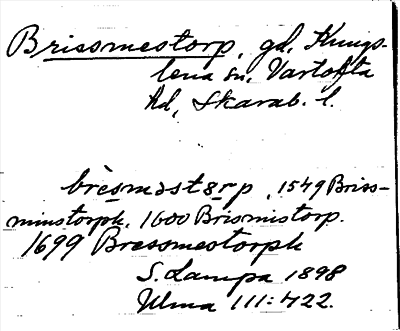 Brissmestorp, gd, Kungs-
lena sn, Vartofta
hd, Skarab. l.
brèsməstərp, 1549 Briss-
minstorph, 1600 Brismistorp.
1699 Bressmestorph
S. Lampa 1898
Ulma 111:422.